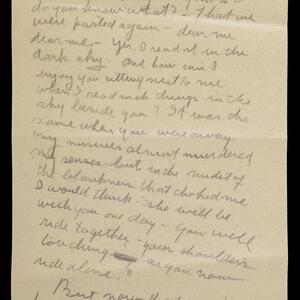 do you know what? - that we
were parted again - dear me
dear me - Yes, I read it in the
dark sky. And how can I
enjoy you sitting next to me
when I read such things in the
sky beside you? It was the
same when you were away
my miseries almost murdered
my senses - but in the midst of
the blankness that choked me
I would think - she will be
with you one day - you will
ride together - your shoulders
touching as you now
ride alone."
But now that